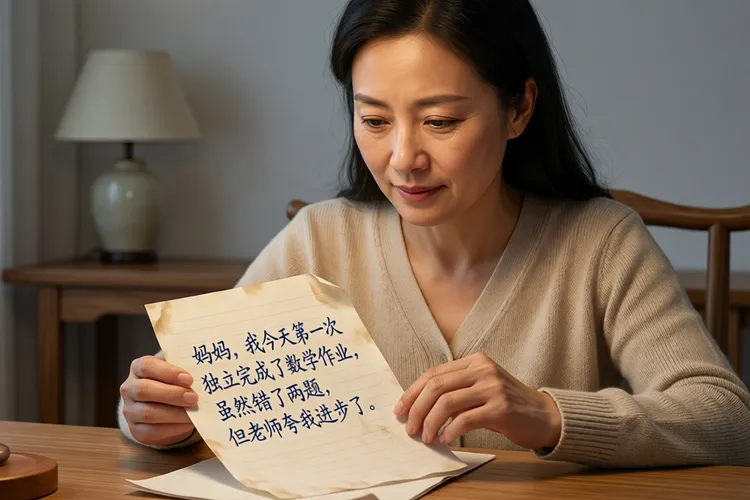 妈妈，我今天第一次
独立完成了数学作业，
虽然错了两题，
但老师夸我进步了。